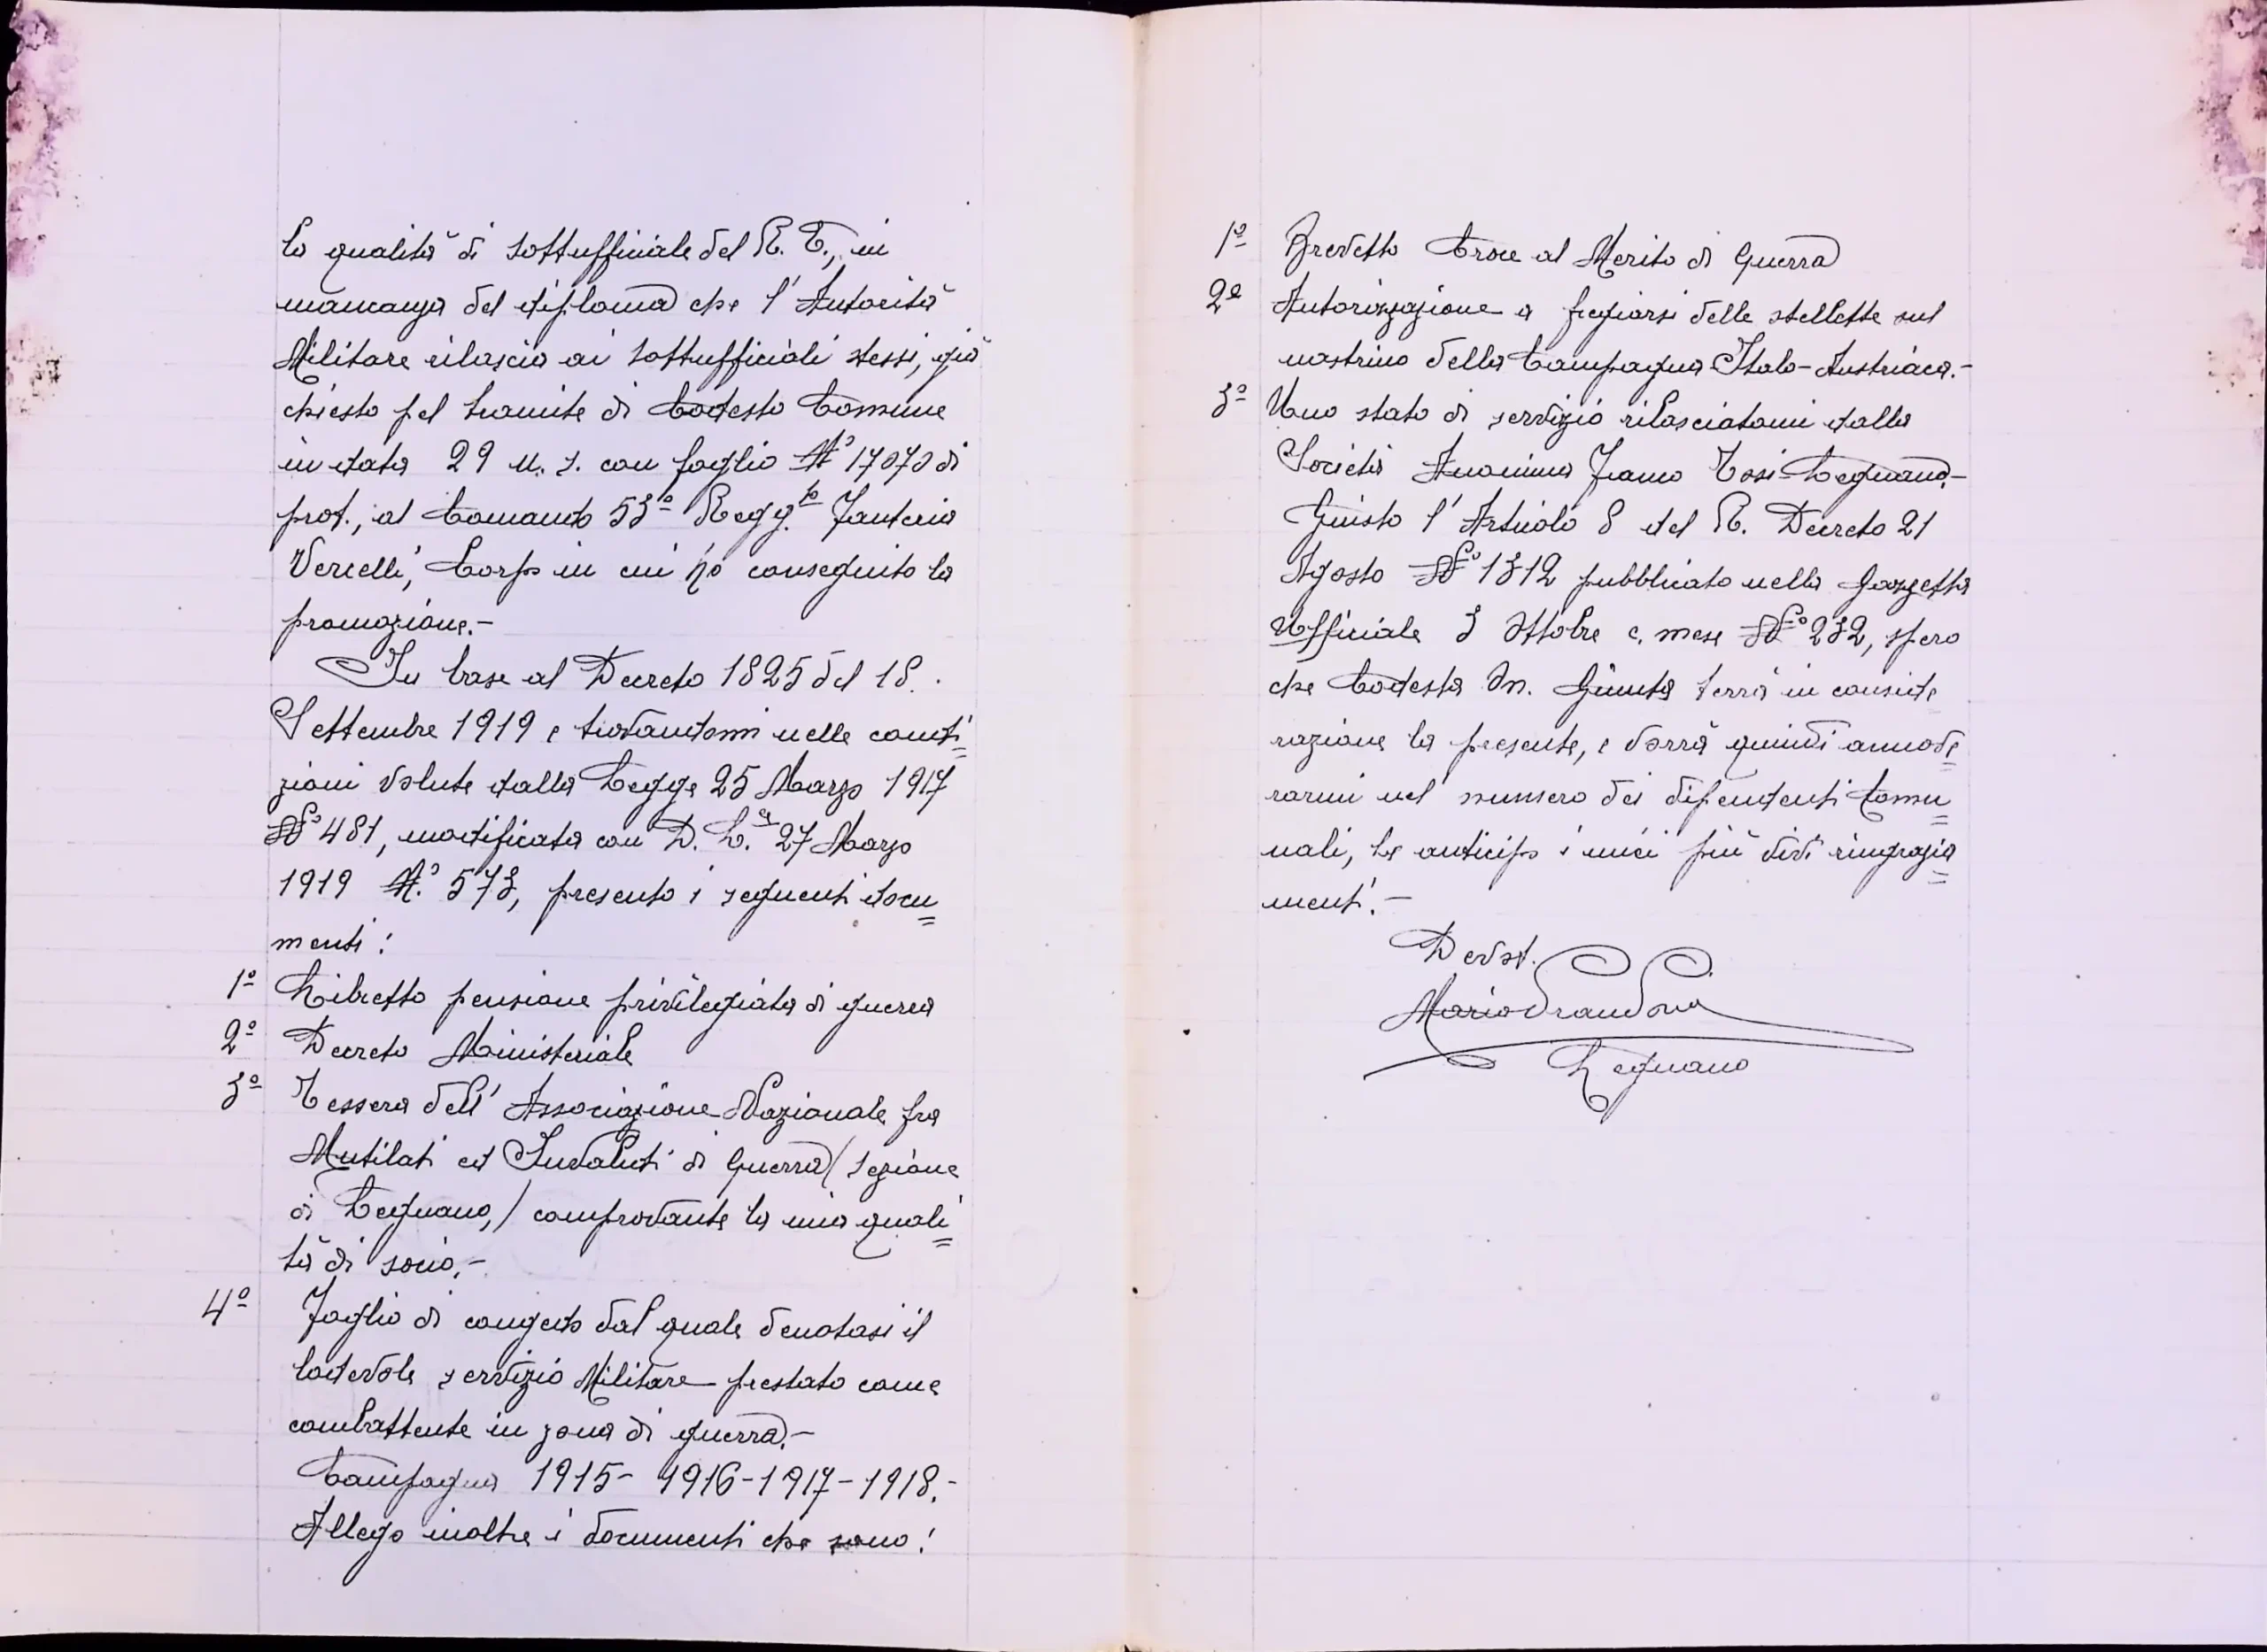 la qualità di sottufficiale del R. E., in
mancanza del diploma che l'Autorità
Militare rilascia ai sottufficiali stessi, già
chiesto pel tramite di Codesto Comune
in data 29 u. s. con foglio N° 17070 di
prot., al Comando 53º Regg.to Fanteria
Vercelli, Corpo in cui ho conseguito la
promozione.-
In base al Decreto 1825 del 18.
Settembre 1919 e trovandomi nelle condi=
zioni volute dalla Legge 25 Marzo 1917
N° 481, modificata con D. L. 27 Marzo
1919 N.° 573, presento i seguenti docu=
menti:
1º Libretto pensione privilegiata di guerra
2º Decreto Ministeriale
3º Tessera dell'Associazione Nazionale fra
Mutilati ed Invalidi di Guerra (sezione
di Legnano,) comprovante la mia quali=
tà di socio.-
4º Foglio di congedo dal quale denotasi il
lodevole servizio Militare prestato come
combattente in zona di guerra.-
Campagna 1915- 1916-1917-1918.-
Allego inoltre i documenti che sono:
1º Brevetto Croce al Merito di Guerra
2º Autorizzazione a fregiarsi delle stellette sul
nastrino della Campagna Italo-Austriaca.-
3º Uno stato di servizio rilasciatomi dalla
Società Anonima Franco Tosi-Legnano.-
Giusto l'Articolo 8 del R. Decreto 21
Agosto N° 1312 pubblicato nella Gazzetta
Ufficiale 3 Ottobre c. mese N° 232, spero
che Codesta On. Giunta terrà in conside=
razione la presente, e vorrà quindi annove=
rarmi nel numero dei dipendenti Comu=
nali, Le anticipo i miei più vivi ringrazia=
menti.-
Devot.
Mario Prandoni
Legnano